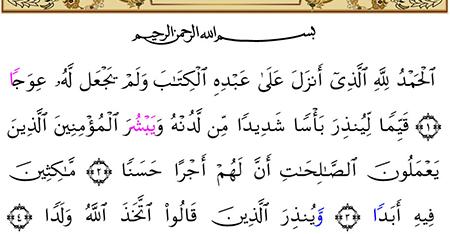 بسم الله الرحمن الرحيم
ٱلْحَمْدُ لِلَّهِ ٱلَّذِىٓ أَنزَلَ عَلَىٰ عَبْدِهِ ٱلْكِتَٰبَ وَلَمْ يَجْعَل لَّهُۥ عِوَجًا
﴿١﴾ قَيِّمًا لِّيُنذِرَ بَأْسًا شَدِيدًا مِّن لَّدُنْهُ وَيَبْشُرَ ٱلْمُؤْمِنِينَ ٱلَّذِينَ
يَعْمَلُونَ ٱلصَّٰلِحَٰتِ أَنَّ لَهُمْ أَجْرًا حَسَنًا ﴿٢﴾ مَّٰكِثِينَ
فِيهِ أَبَدًا ﴿٣﴾ وَيُنذِرَ ٱلَّذِينَ قَالُوا۟ ٱتَّخَذَ ٱللَّهُ وَلَدًا ﴿٤﴾